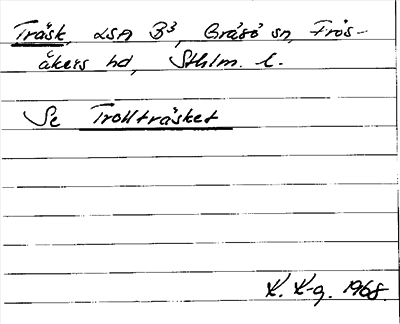 Träsk, LSA B³, Gräsö sn, Frös-
åkers hd, Sthlm. l.
Se Trollträsket
K. K-g. 1968.